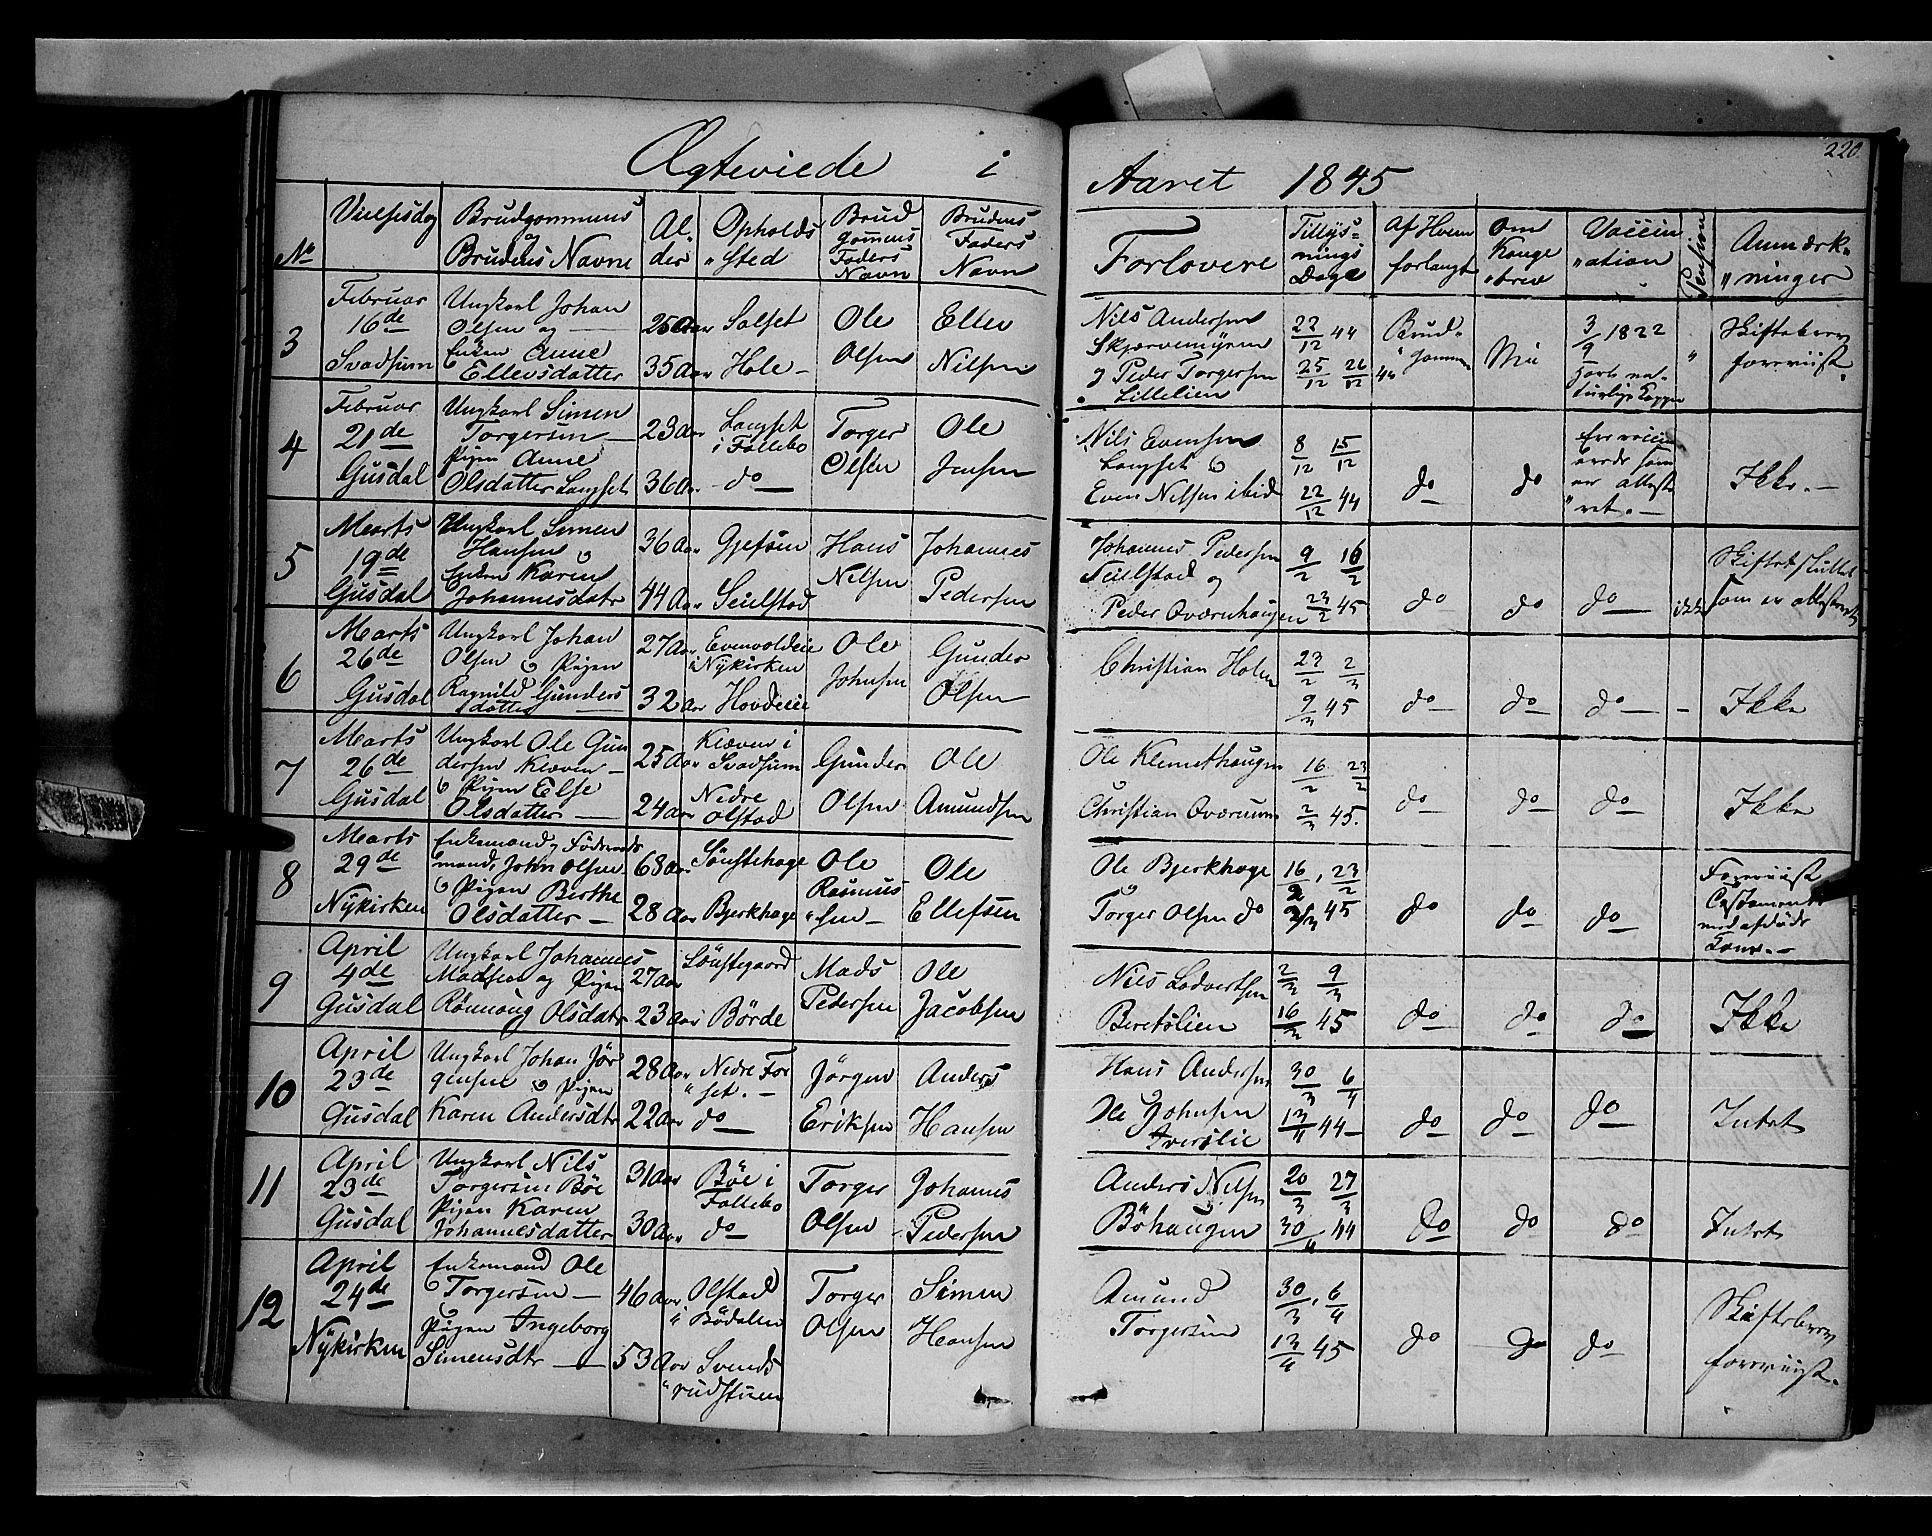 220
Ægteviede i
Aaret 1845
No
Vielsesdag
Brudgommens
og
Brudens Navne
Al-
der
Opholds
"sted
Brud
gomens
Faders
Navn
Brudens
Faders
Navn
Forlovere
Tillys=
nings
Dage
Af Hvem
forlangt
Om
Konge
"brev
Vaccin
"ation
Pension
Anmærk-
"ninger
3
Februar
16de
Svadsum
Ungkarl Johan
Olsen og
Enken Anne
Ellevsdatter
25 Aar
35 Aar
Solset
Hole
Ole
Olsen
Ellev
Nilsen
Nils Andersen
Skjærvemyren
og Peder Torgersen
Lillelien
22/12 44
25/12 26/12 44
Brud-
"gommen
Nei
3/9 1822
havt na-
turlige Kopper
"
Skiftebrev
foreviist.
4
Februar
21de
Gusdal
Ungkarl Simen
Torgersen
Pigen Anne
Olsdatter Langset
23 Aar
36 Aar
Langset
i Follebo
do
Torger
Olsen
Ole
Jensen
Nils Evensen
Langset og
Even Nilsen ibid
8/12 15/12
22/12 44
do
do
Ere vaccine-
rede som
er atteste
"ret.
Ikke.
5
Marts
19de
Gusdal
Ungkarl Simen
Hansen og
Enken Karen
Johannesdatr
36 Aar
44 Aar
Gjefsen
Seielstad
Hans
Nilsen
Johannes
Pedersen
Johannes Pedersen
Seielstad og
Peder Qværnhaugen
9/2 16/2
23/2 45
do
do
do
ikke
Skiftet sluttet
som er attesteret
6
Marts
26de
Gusdal
Ungkarl Johan
Olsen og Pigen
Ragnild Gunders
datter
27 Aar
32 Aar
Evenvoldeie
i Nykirken
Hovdeeie
Ole
Johnsen
Gunder
Olsen
Christian Holen
23/2 2/3
9/3 45
do
do
do
Ikke
7
Marts
26de
Gusdal
Ungkarl Ole Gun
dersen Kleven
og Pigen Else
Olsdatter
25 Aar
24 Aar
Kleven i
Svadsum
Nedre
Olstad
Gunder
Olsen
Ole
Amundsen
Ole Klemethaugen
Christian Qværnum
16/2 23/2
2/3 45.
do
do
do
Ikke
8
Marts
29de
Nykirken
Enkemand og Föderaads
mand, John Olsen
og Pigen Berthe
Olsdatter
68 Aar
28 Aar
Sönstehage
Bjerkhage
Ole
Rasmus
"sen
Ole
Ellefsen
Ole Bjerkhage
Torger Olsen do
16/2, 23/2
2/3 45
do
do
do
Foreviist
Testament
med afdöde
Kone.
9
April
4de
Gusdal
Ungkarl Johannes
Madsen og Pigen
Rönnoug Olsdatr
27 Aar
23 Aar
Sönstegaard
Börde
Mads
Pedersen
Ole
Jacobsen
Nils Lodvertsen
Beretslien
2/3 9/3
16/3 45
do
do
do
Ikke
10
April
23de
Gusdal
Ungkarl Johan Jör
gensen og Pigen
Karen Andersdtr
28 Aar
22 Aar
Nedre For
"set.
do
Jörgen
Eriksen
Anders
Hansen
Hans Andersen
Ole Johnsen
Iverslie
30/3 6/4
13/4 44
do
do
do
Intet
11
April
23de
Gusdal
Ungkarl Nils
Torgersen Böe
Pigen Karen
Johannesdatter
31 Aar
30 Aar
Böe i
Follebo
do
Torger
Olsen
Johannes
Pedersen
Anders Nilsen
Böhaugen
20/3 27/3
30/4 44
do
do
do
Intet
12
April
24de
Nykirken
Enkemand Ole
Torgersen
og Pigen Ingeborg
Simensdtr
46 Aar
53 Aar
Olstad
i Bödalen
Svends
"rudstuen
Torger
Olsen
Simen
Hansen
Amund
Torgersen
30/3, 6/4
13/4 45
do
do
do
Skiftebrev
foreviist.